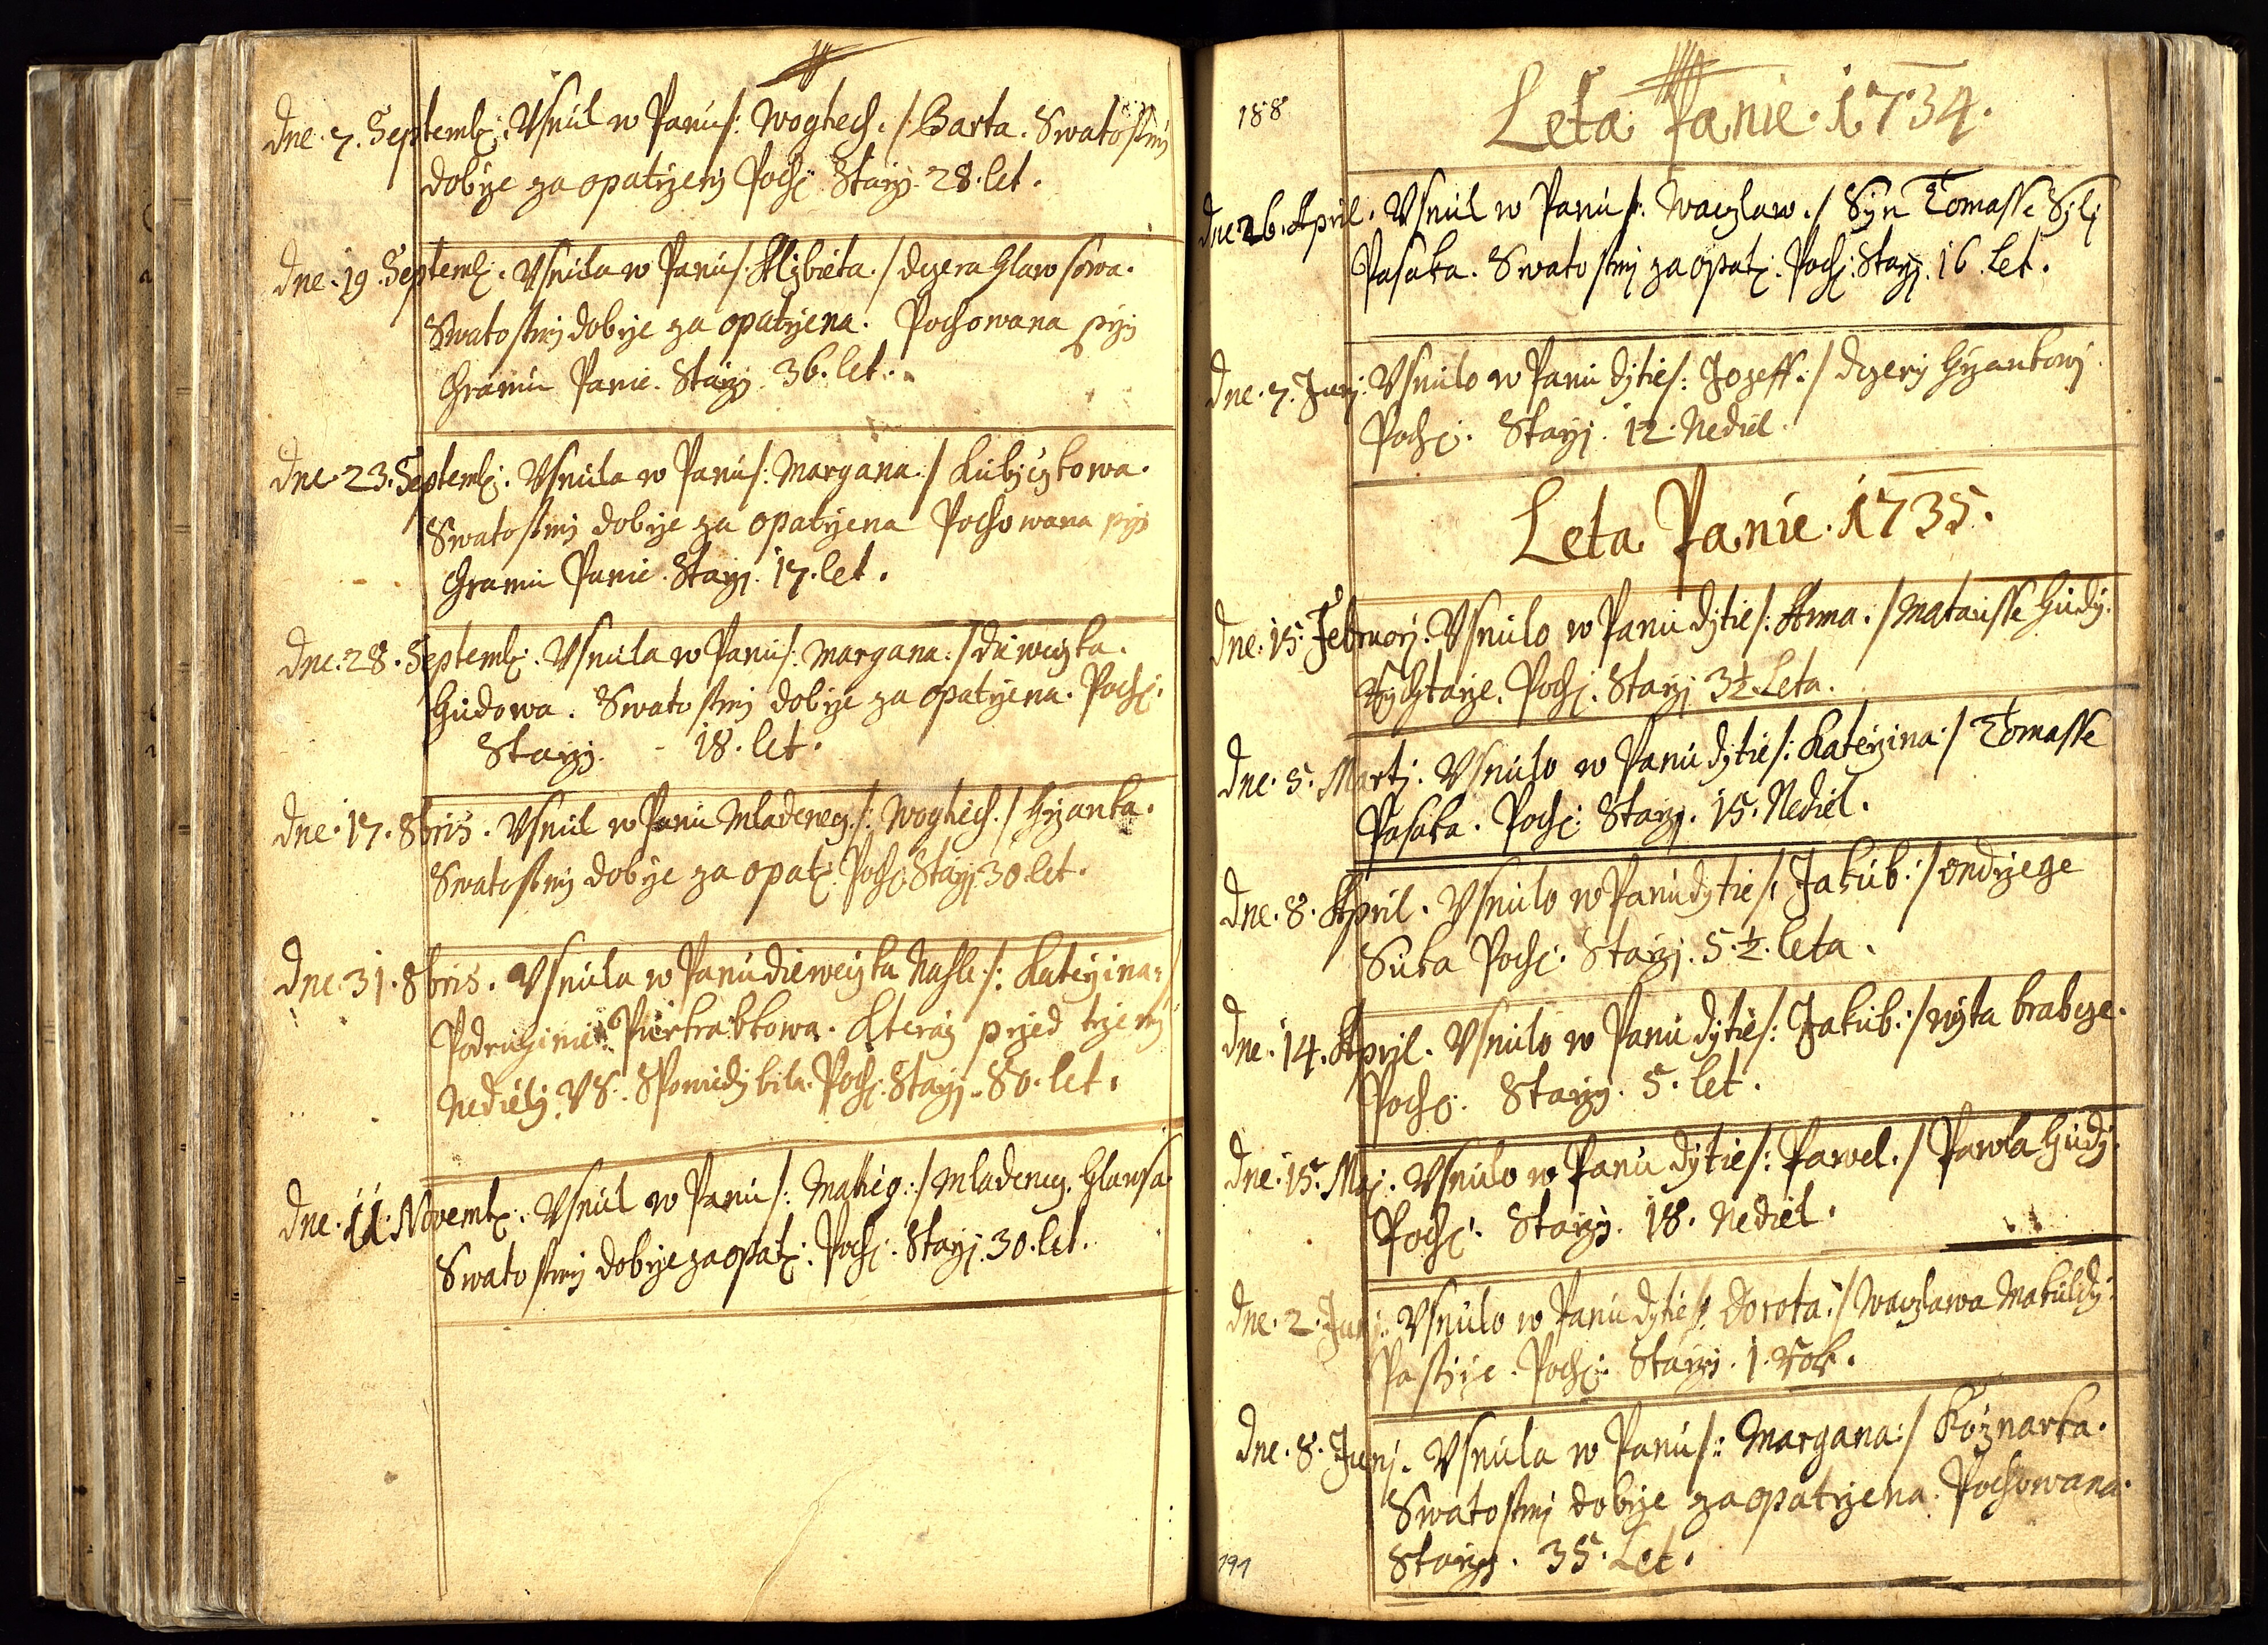 Dne. 7. Septemb: Usnul w Panu /: Wogtech. / Barta. Swatostmj
dobrze zaopatrzeny Poch: Starzj. 28. let.
Dne. 19. Septemb: Usnula w Panu /: Alzbieta. / dczera Glawsowa.
Swatostmj dobrze zaopatrzena. Pochowana przj
Chramu Panie. Starzj. 36. let.
Dne. 23. Septemb: Usnula w Panu /: Margana: / Kubiczkowa.
Swatostmj dobrze zaopatrzena Pochowana przj
Chramu Panie. Starzj. 17. let.
Dne. 28. Septemb: Usnula w Panu /: Margana: / diweczka.
Gudowa. Swatostmj dobrze zaopatrzena. Poch:
Starzj. 18. let.
Dne. 17. 8bris. Usnul w Panu Mladenecz /: Wogtiech. / Hrzanka.
Swatostmj dobrze zaopat: Poch: Starzj 30. let.
Dne. 31. 8bris. Usnula w Panu dieweczka Nahle /: Katerzina: /
Podruzinie Kteraz przed trzemj
Nedielj. US. Spowiedj bila. Poch: Starzj. 80. let.
Dne. 11. Novemb: Usnul w Panu /: Matieg: / Mladenecz. Glawsa.
Swatostmj dobrze zaopat: Poch: Starzj. 30. let.
188
Leta Panie. 1734.
Dne 26. April. Usnul w Panu /: Waczlaw. / Syn Tomasse
Pasaka. Swatostmj zaopat: Poch: Starzj. 16. let.
Dne. 7. Junj. Usnulo w Panu djtie /: Jozeff: / dczery Hrzankowj
Poch: Starzj. 12. Nediel.
Leta Panie. 1735.
Dne. 15. Februarj. Usnulo w Panu djtie /: Anna. / Matausse Gudj.
Rychtarze. Poch: Starzj 3½. Leta.
Dne. 5. Martj. Usnulo w Panu djtie /: Katerzina: / Tomasse
Pasaka. Poch: Starzj. 15. Nediel.
Dne. 8. April. Usnulo w Panu djtie /: Jakub: / Ondrzege
Suka Poch: Starzj. 5. ½. leta.
Dne. 14. April. Usnulo w Panu djtie /: Jakub: / wjta brabcze.
Poch: Starzj. 5. let.
Dne. 15. Maj. Usnulo w Panu djtie /: Pawel. / Pawla Gudj.
Poch: Starzj. 18. Nediel.
Dne. 2. Junj: Usnulo w Panu djtie /: Dorota: / Waczlawa Makuldj.
Pastirze. Poch: Starzj. 1. rok.
Dne. 8. Junj. Usnula w Panu /: Margana: / Koznarka.
Swatostmj dobrze zaopatrzena. Pochowana.
Starzj. 35. Let.
191